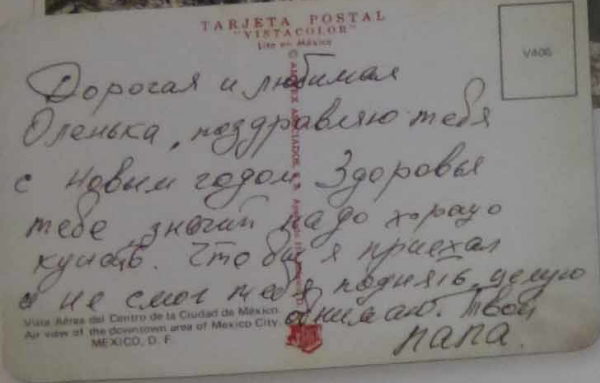 TARJETA POSTAL
"VISTACOLOR"
Lito en México
V406
Дорогая и любимая
Оленька, поздравляю тебя
с новым годом Здоровья
тебе, значит надо хорошо
кушать. Что бы я приехал
и не смог тебя поднять. целую
обнимаю. твой
папа.
Vista Aérea del Centro de la Ciudad de México.
Air view of the downtown area of Mexico City.
MEXICO, D. F.